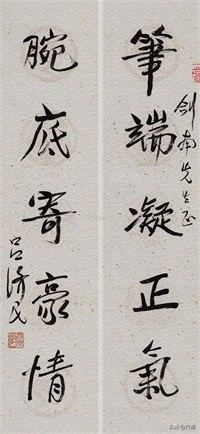 筆端凝正氣
劍南先生正
腕底寄豪情
呂濟民